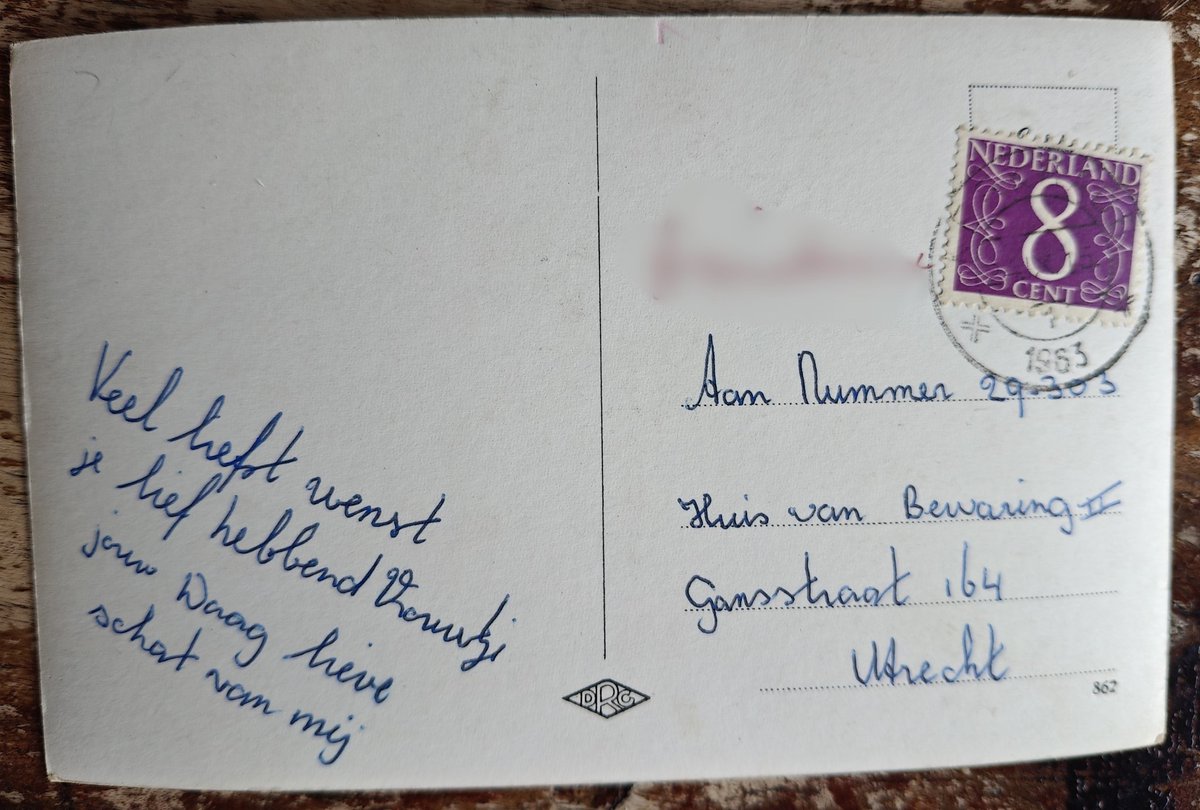 Veel liefst wenst
je lief hebbend Vrouwtje
jouw Daag lieve
schat van mij
NEDERLAND
8
CENT
1963
Aan Nummer 29.303
Huis van Bewaring II
Gansstraat 164
Utrecht
DRC
862